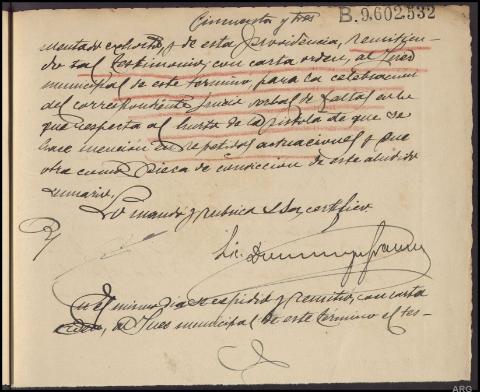 Cincuenta y tres B.9.602.532
mentado exhorto y de esta providencia, remitien-
dose al testimonio, con carta orden, al Juez
municipal de este termino, para la celebracion
del correspondiente juicio verbal de faltas en lo
que respecta al hurto de la pistola de que se
hace mencion en repetidas actuaciones y que
otra como pieza de conviccion de este aludido
sumario.
Lo mando y rubrica S.S. certifico.
Lic.
En el mismo dia se expidió y remitió, con carta
orden, al Juez municipal de este término el tes-
ARG